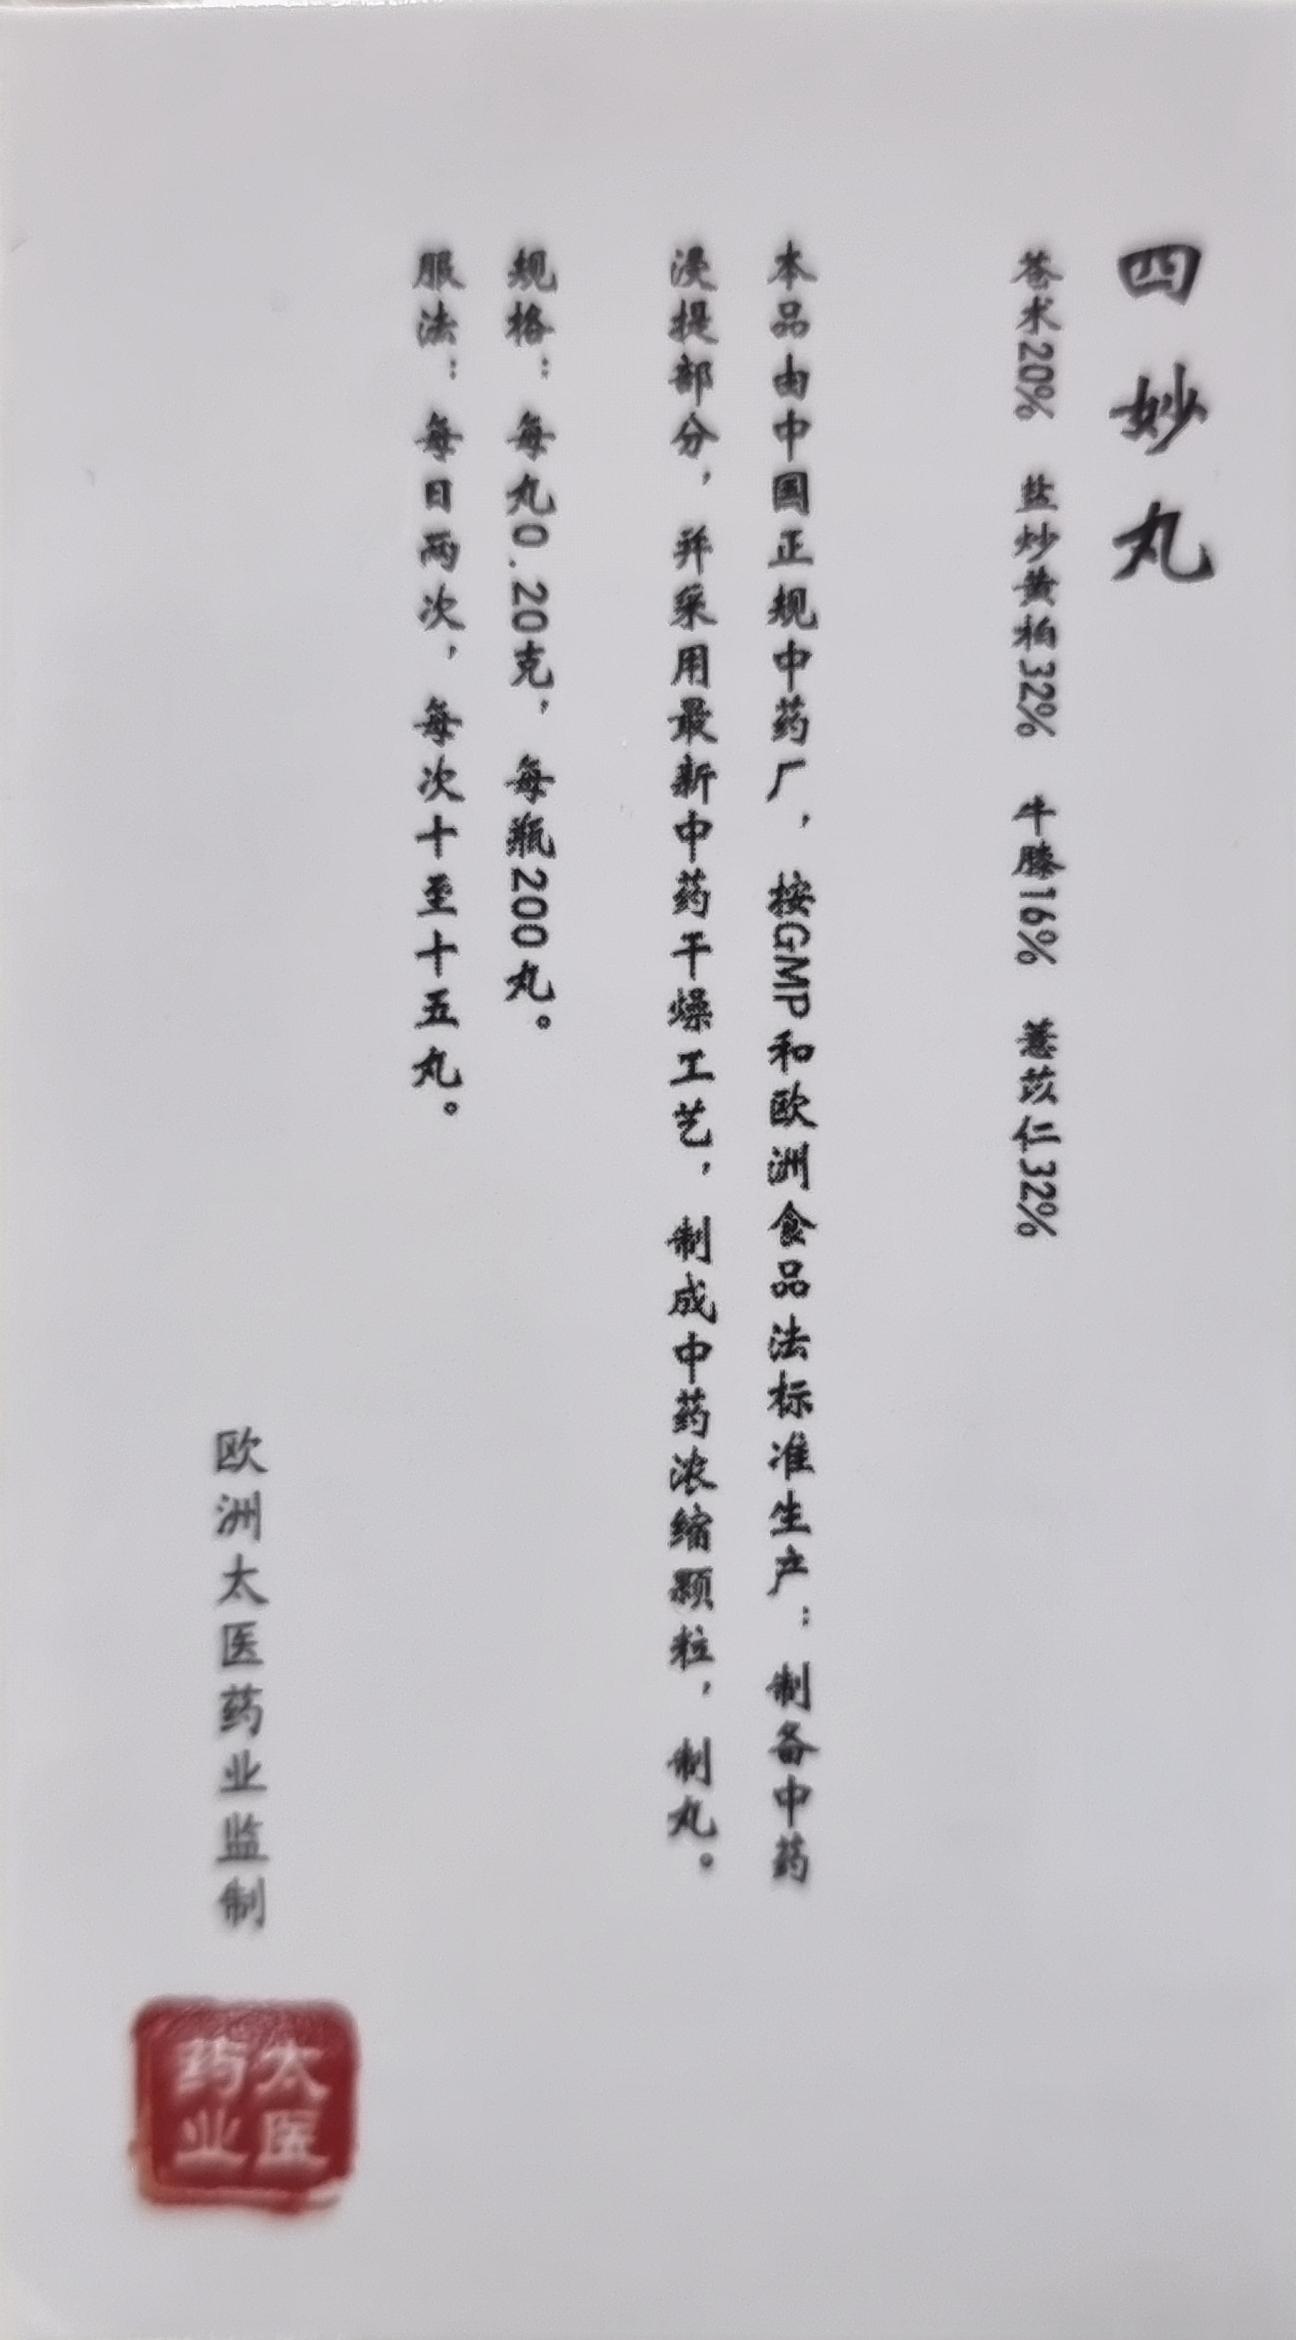 四妙丸
苍术20% 盐炒黄柏32% 牛膝16% 薏苡仁32%
本品由中国正规中药厂，按GMP和欧洲食品法标准生产；制备中药
浸提部分，并采用最新中药干燥工艺，制成中药浓缩颗粒，制丸。
规格：每丸0.20克，每瓶200丸。
服法：每日两次，每次十至十五丸。
欧洲太医药业监制
太医
药业